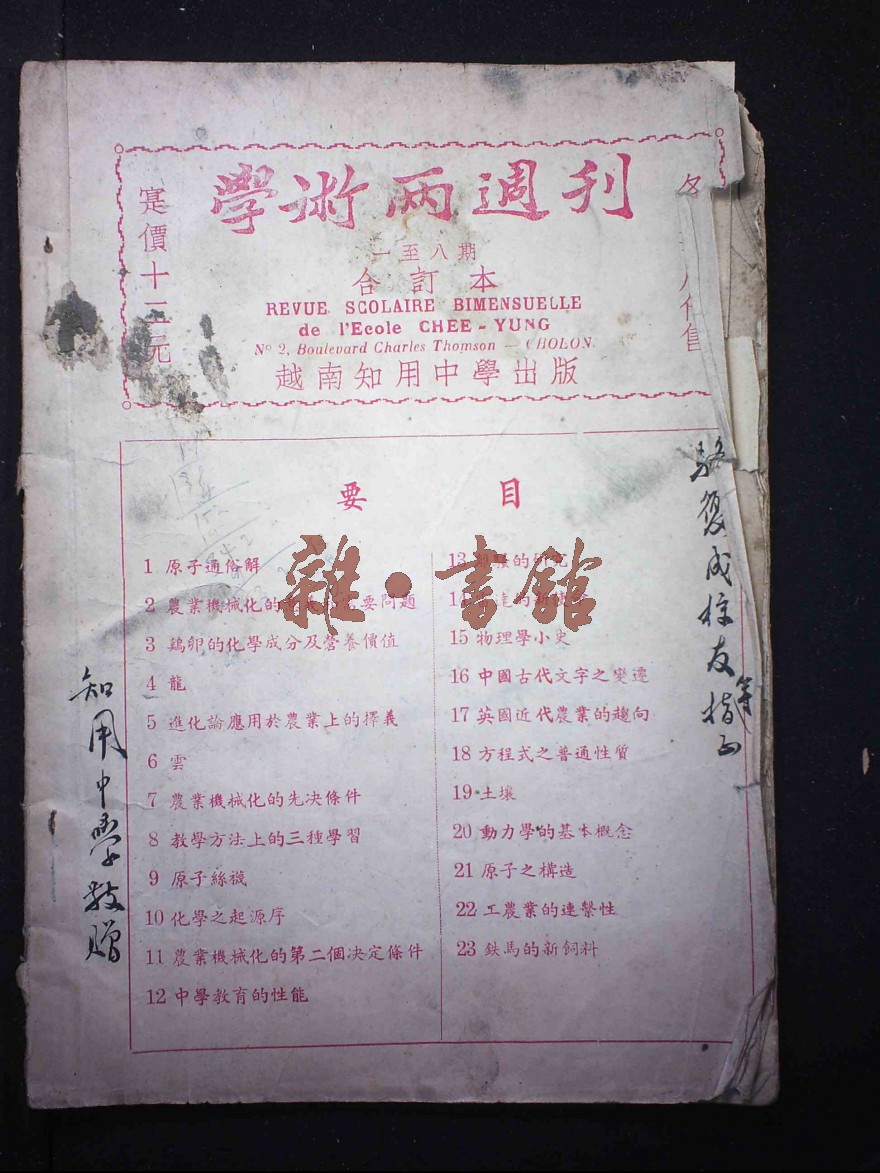 學術两週刊
一至八期
合訂本
REVUE SCOLAIRE BIMENSUELLE
de l'Ecole CHEE-YUNG
Nº 2, Boulevard Charles Thomson — CHOLON.
越南知用中學出版
定價十二元
代售
要目
1 原子通俗解
2 農業機械化的要問題
3 鷄卵的化學成分及营養價值
4 龍
5 進化論應用於農業上的擇義
6 雲
7 農業機械化的先决條件
8 教學方法上的三種學習
9 原子絲襪
10 化學之起源序
11 農業機械化的第二個决定條件
12 中學教育的性能
13 的研究
15 物理學小史
16 中國古代文字之变遷
17 英國近代農業的趨向
18 方程式之普通性质
19 土壤
20 動力學的基本概念
21 原子之構造
22 工農業的連繫性
23 鉄馬的新飼料
雜·書館
駱復成校友指正
知用中學敬贈